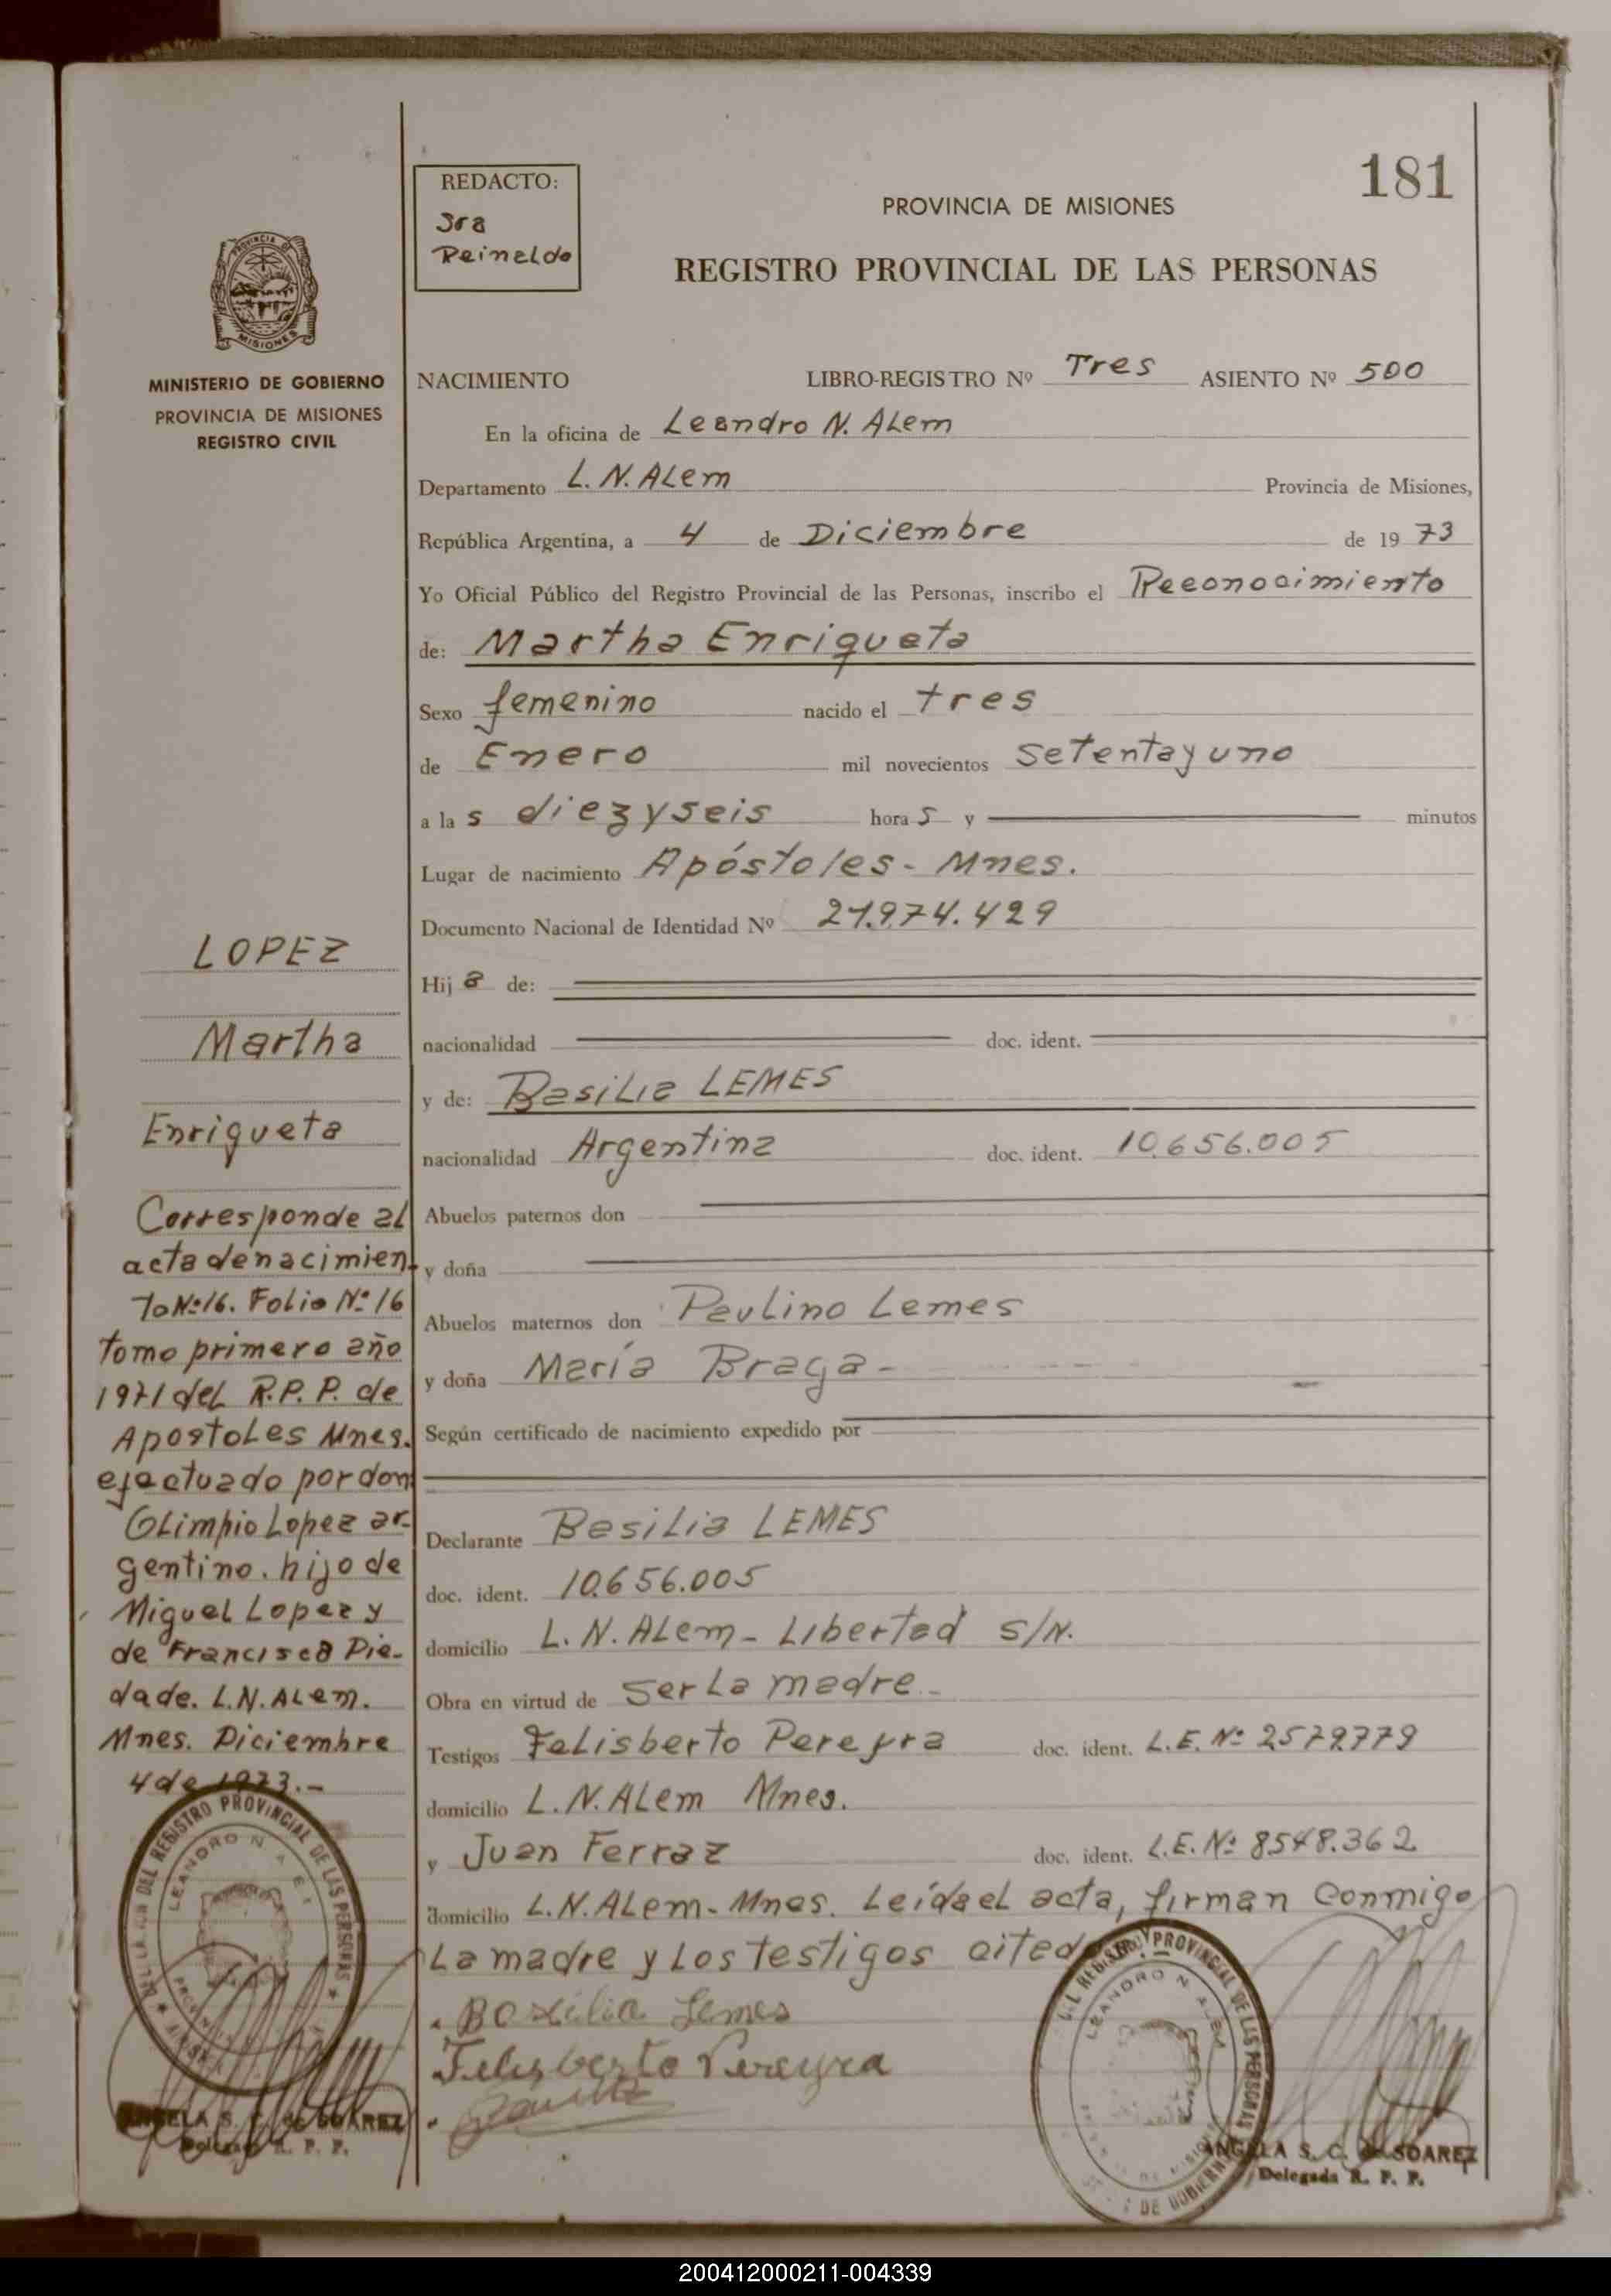 181
REDACTO:
Sra
Reinaldo
PROVINCIA DE MISIONES
REGISTRO PROVINCIAL DE LAS PERSONAS
MINISTERIO DE GOBIERNO
PROVINCIA DE MISIONES
REGISTRO CIVIL
NACIMIENTO LIBRO-REGISTRO Nº Tres ASIENTO Nº 500
En la oficina de Leandro N. ALem
Departamento L. N. ALem Provincia de Misiones,
República Argentina, a 4 de Diciembre de 1973
Yo Oficial Público del Registro Provincial de las Personas, inscribo el Reconocimiento
de: Martha Enriqueta
Sexo femenino nacido el tres
de Enero mil novecientos setentayuno
a las diezyseis horas y minutos
Lugar de nacimiento Apóstoles - Mnes.
Documento Nacional de Identidad Nº 21.974.429
Hija de:
nacionalidad doc. ident.
y de: Basilia LEMES
nacionalidad Argentina doc. ident. 10.656.005
Abuelos paternos don
y doña
Abuelos maternos don Paulino Lemes
y doña María Braga -
Según certificado de nacimiento expedido por
Declarante Basilia LEMES
doc. ident. 10.656.005
domicilio L. N. ALem - Libertad s/N.
Obra en virtud de ser La madre -
Testigos Felisberto Pereyra doc. ident. L.E. Nº 2.579.779
domicilio L. N. ALem Mnes.
y Juan Ferraz doc. ident. L.E. Nº 8548.362
domicilio L. N. ALem - Mnes. Leída el acta, firman conmigo
La madre y Los testigos
Basilia Lemes
Felisberto Pereyra
LOPEZ
Martha
Enriqueta
Corresponde al
acta de nacimien-
to Nº 16. Folio Nº 16
tomo primero año
1971 del R.P.P. de
Apostoles Mnes.
efectuado por don
OLimpio Lopez ar-
gentino. hijo de
Miguel Lopez y
de Francisca Pie-
dade. L.N. ALem.
Mnes. Diciembre
4 de 1973.-
DEL REGISTRO PROVINCIAL DE LAS PERSONAS
LEANDRO N. ALEM
ANGELA S. C. de SOAREZ
Delegada R. P. P.
DEL REGISTRO PROVINCIAL DE LAS PERSONAS
LEANDRO N. ALEM
ANGELA S. C. de SOAREZ
Delegada R. P. P.
200412000211-004339